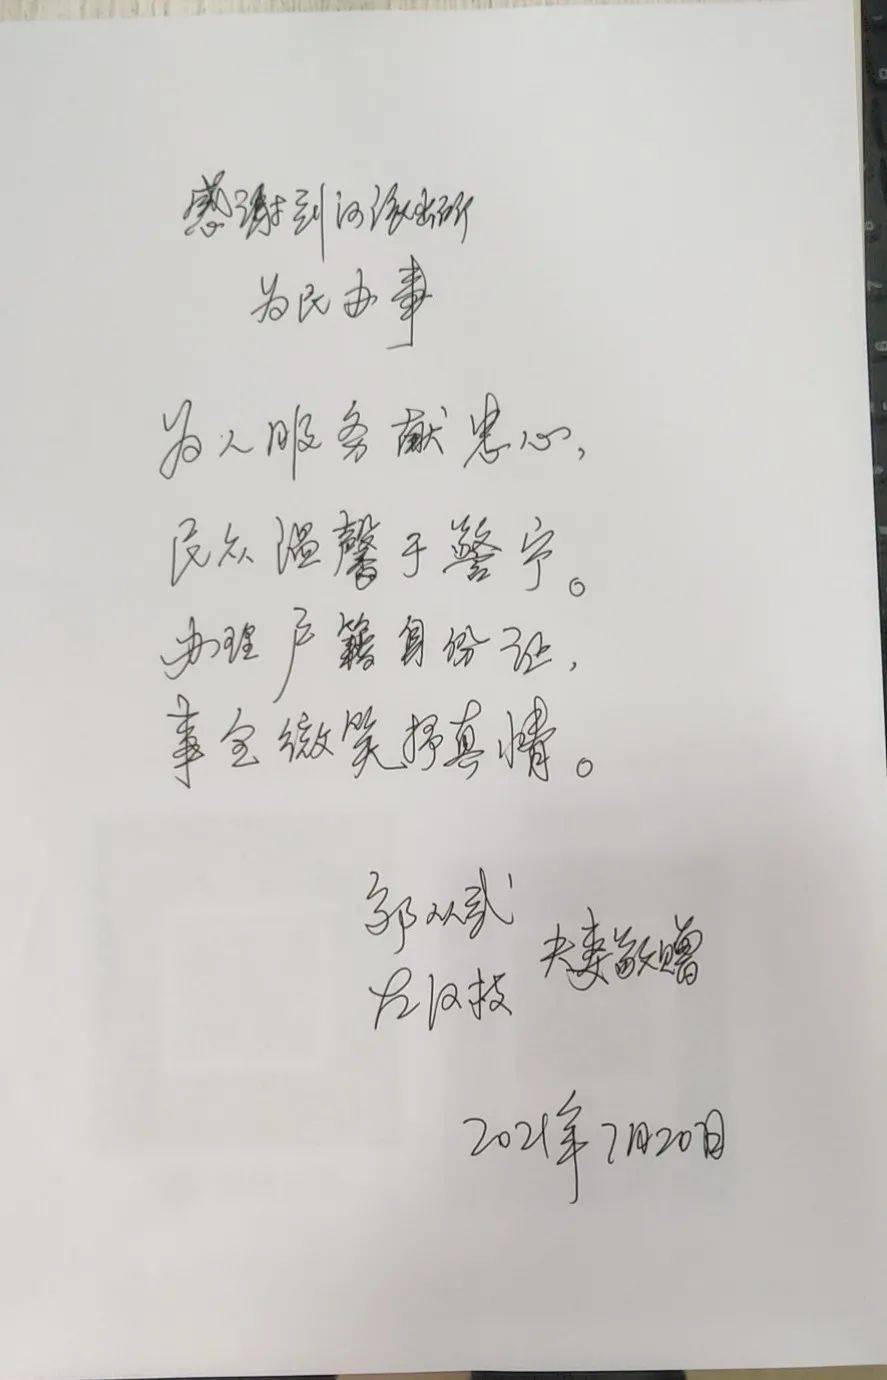 感谢刘河派出所
为民办事
为人服务献忠心,
民众温馨于警宁。
办理户籍身份证,
事全微笑抒真情。
郭从武
左汉枝 夫妻敬赠
2021年7月20日